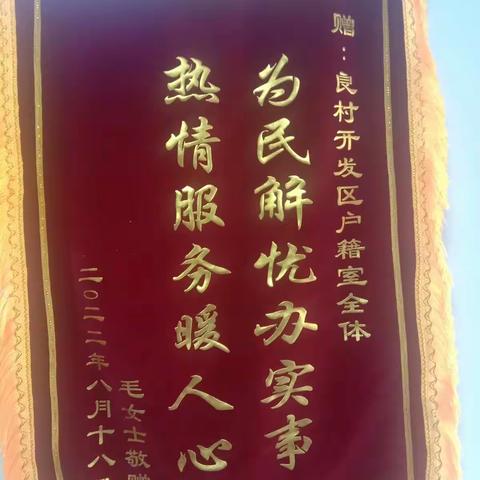 赠：良村开发区户籍室全体
为民解忧办实事
热情服务暖人心
毛女士敬赠
二〇二二年八月十八日